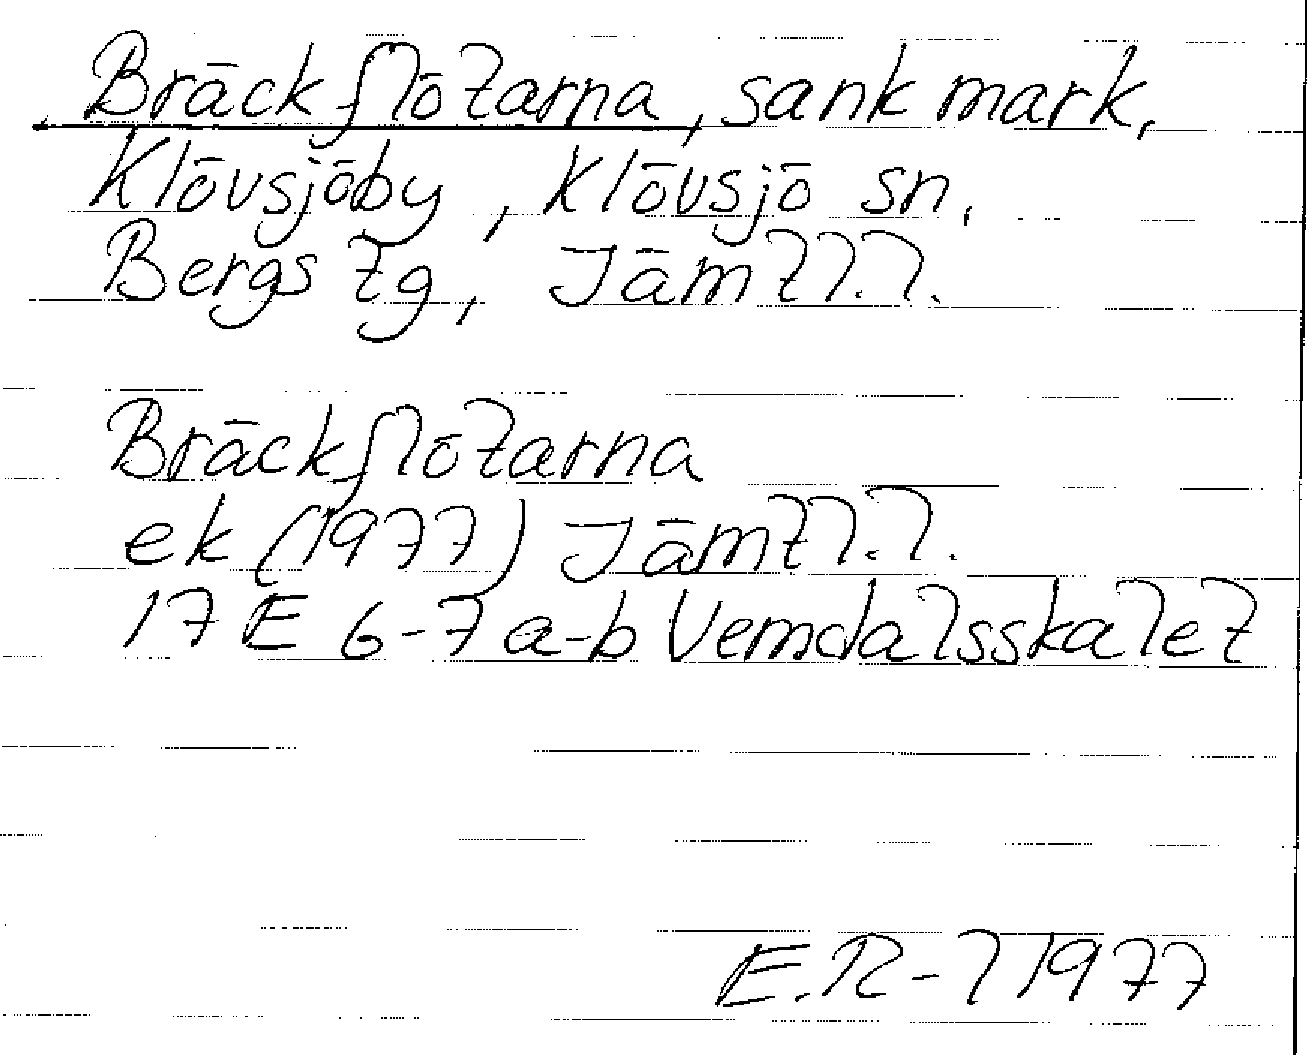 Bräckflötarna, sank mark,
Klövsjöby, Klövsjö sn,
Bergs tg, Jämtl.l.
Bräckflötarna
ek (1977) Jämtl.l.
17 E 6-7 a-b Vemdalsskalet
E.R-l 1977